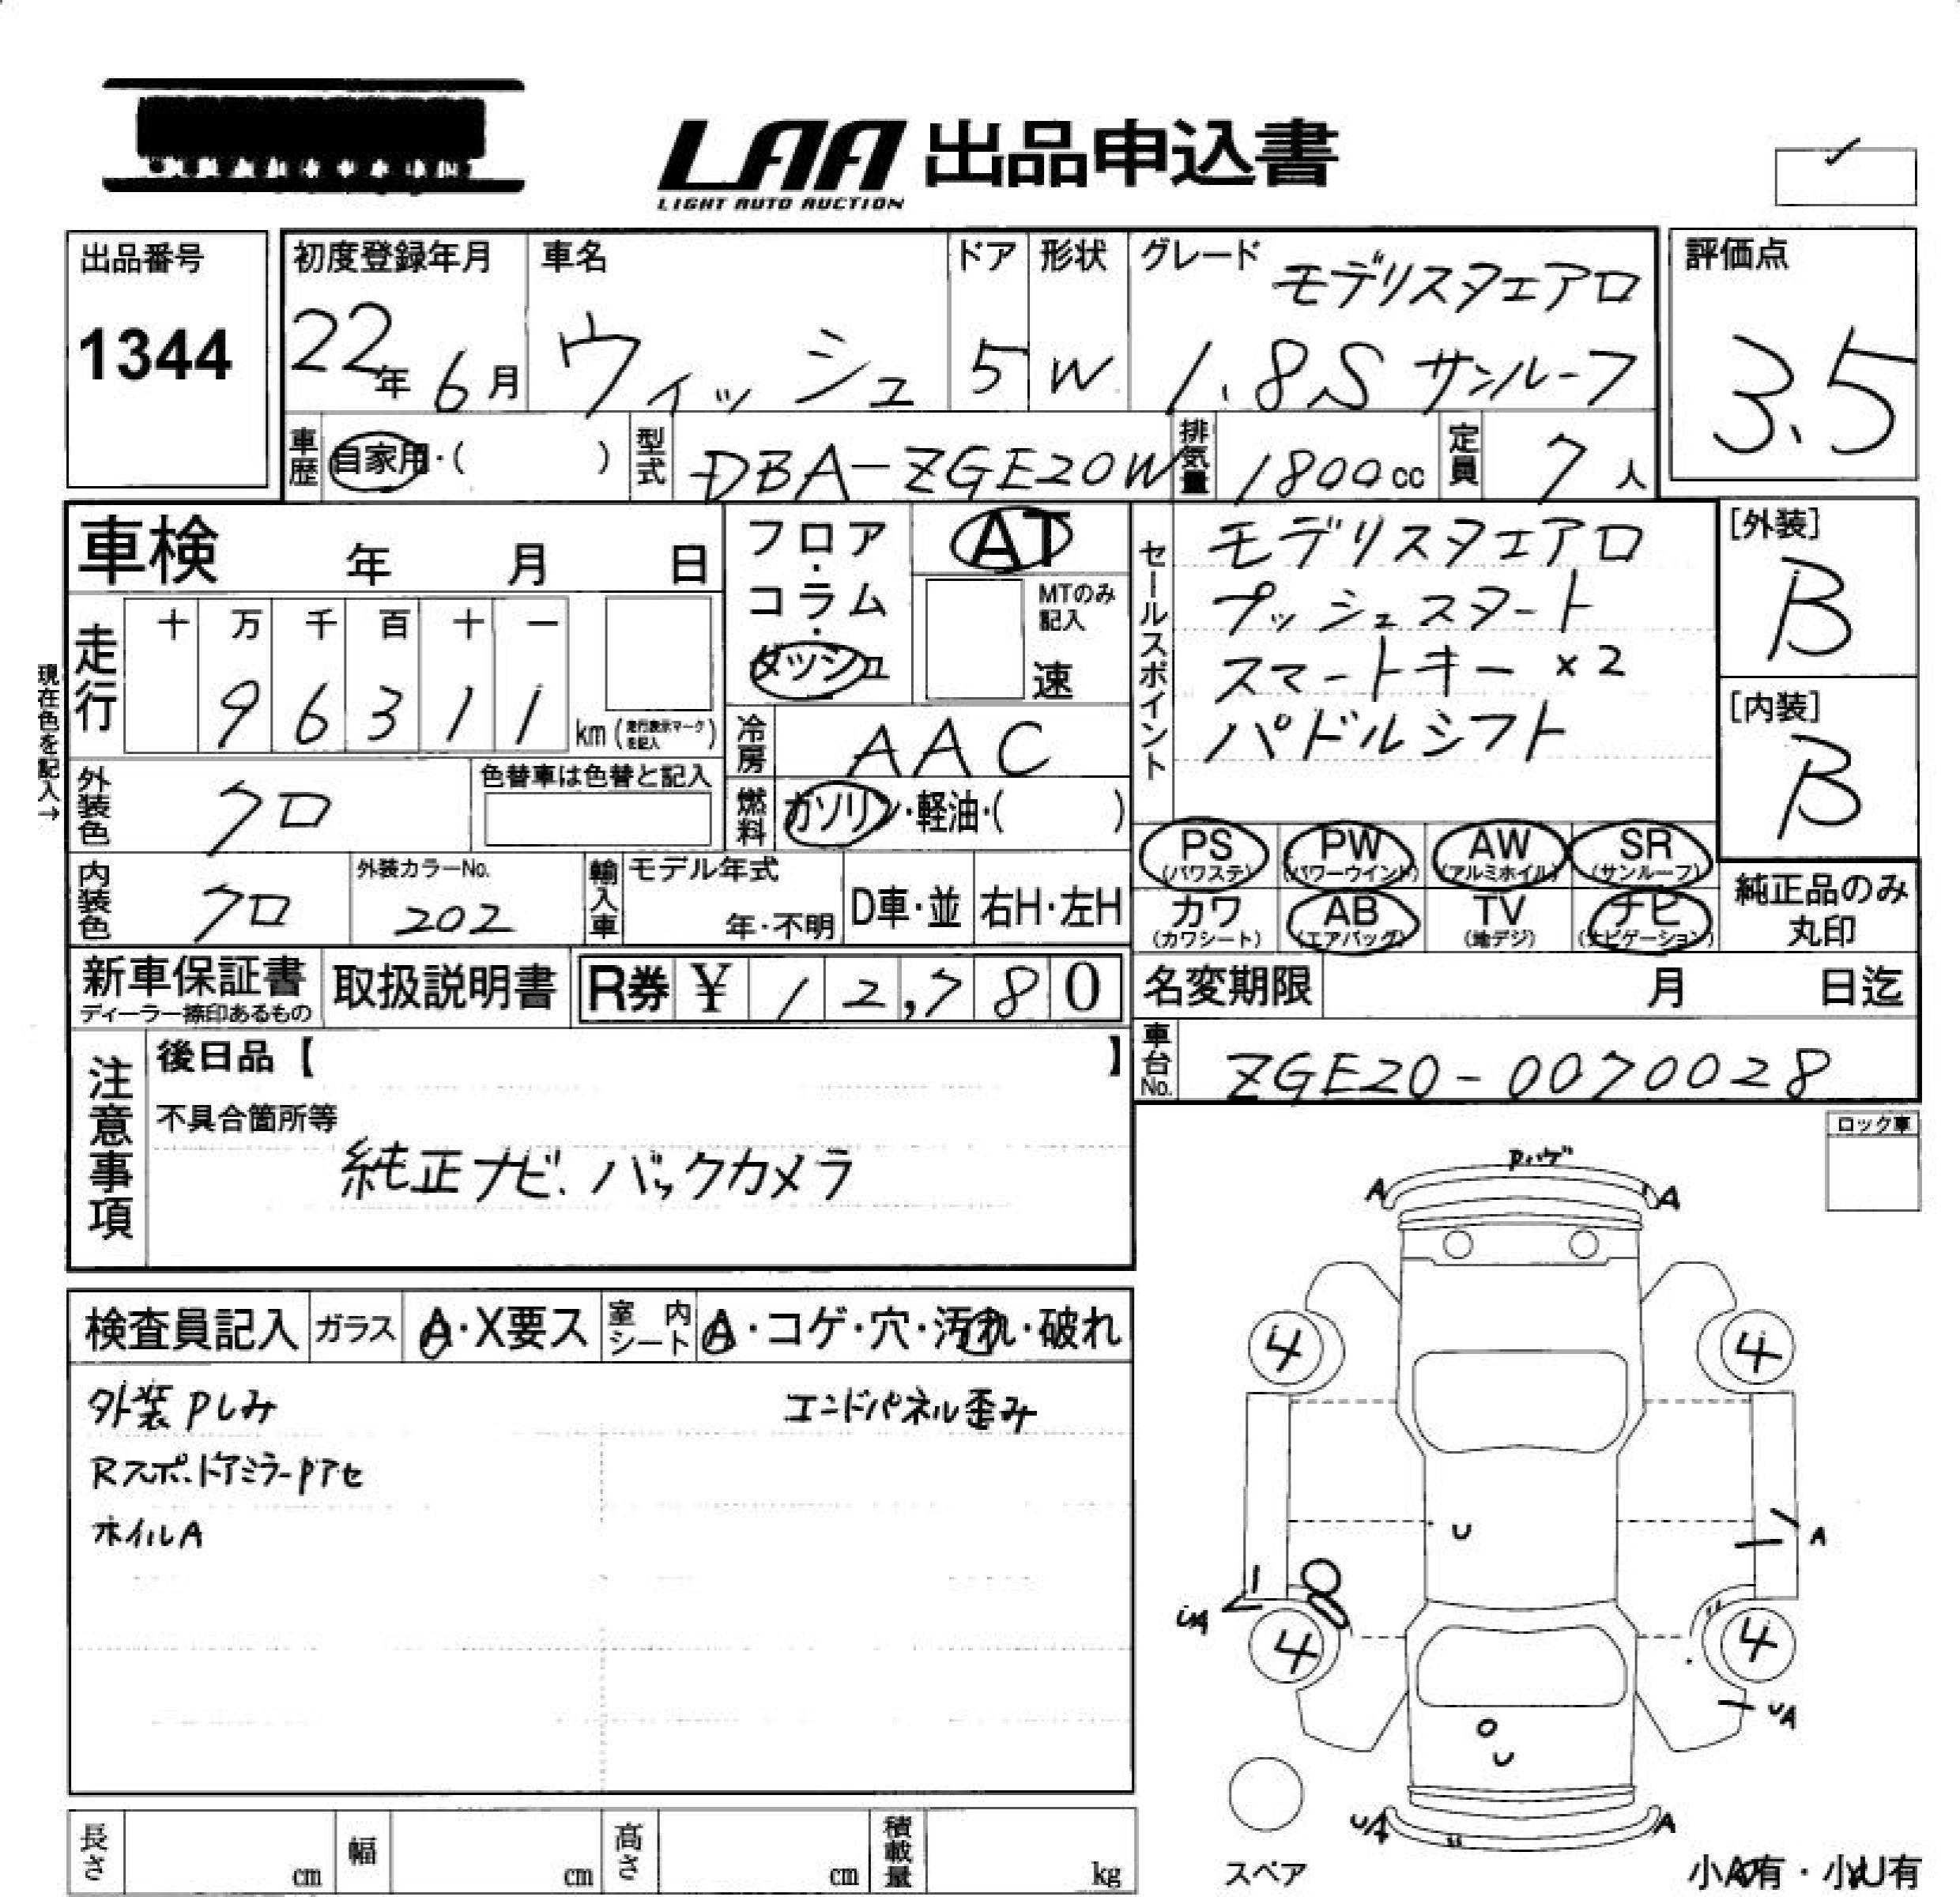 LAA 出品申込書
LIGHT AUTO AUCTION
出品番号
1344
初度登録年月
22年 6月
車名
ウィッシュ
ドア
5
形状
W
グレード
モデリスタエアロ
1.8S サンルーフ
評価点
3.5
車歴 自家用・( )
型式 DBA-ZGE20W
排気量 1800cc
定員 7人
車検 年 月 日
フロア・コラム・ダッシュ
AT
MTのみ記入
速
現在色を記入→
走行
十 万 千 百 十 一
9 6 3 1 1 km(走行表示マークを記入)
冷房 AAC
燃料 ガソリン・軽油・( )
セールスポイント
モデリスタエアロ
プッシュスタート
スマートキー×2
パドルシフト
[外装]
B
[内装]
B
外装色 クロ
色替車は色替と記入
内装色 クロ
外装カラーNo.
202
輸入車 モデル年式
年・不明
D車・並 右H・左H
PS (パワステ)
PW (パワーウインド)
AW (アルミホイル)
SR (サンルーフ)
カワ (カワシート)
AB (エアバッグ)
TV (地デジ)
ナビ (ナビゲーション)
純正品のみ
丸印
新車保証書
ディーラー捺印あるもの
取扱説明書
R券 ¥ 12,780
名変期限 月 日迄
車台No. ZGE20-0070028
注意事項
後日品【 】
不具合箇所等
純正ナビ.バックカメラ
ロック車
検査員記入 ガラス A・X要ス 室内シート A・コゲ・穴・汚れ・破れ
外装Pしみ
エンドパネル歪み
Rスポ.ドアミラーPアセ
ホイルA
Pハゲ
A
A
4
4
U
A
UA
4
4
UA
U
UA
A
スペア
小A有・小U有
長さ cm
幅 cm
高さ cm
積載量 kg